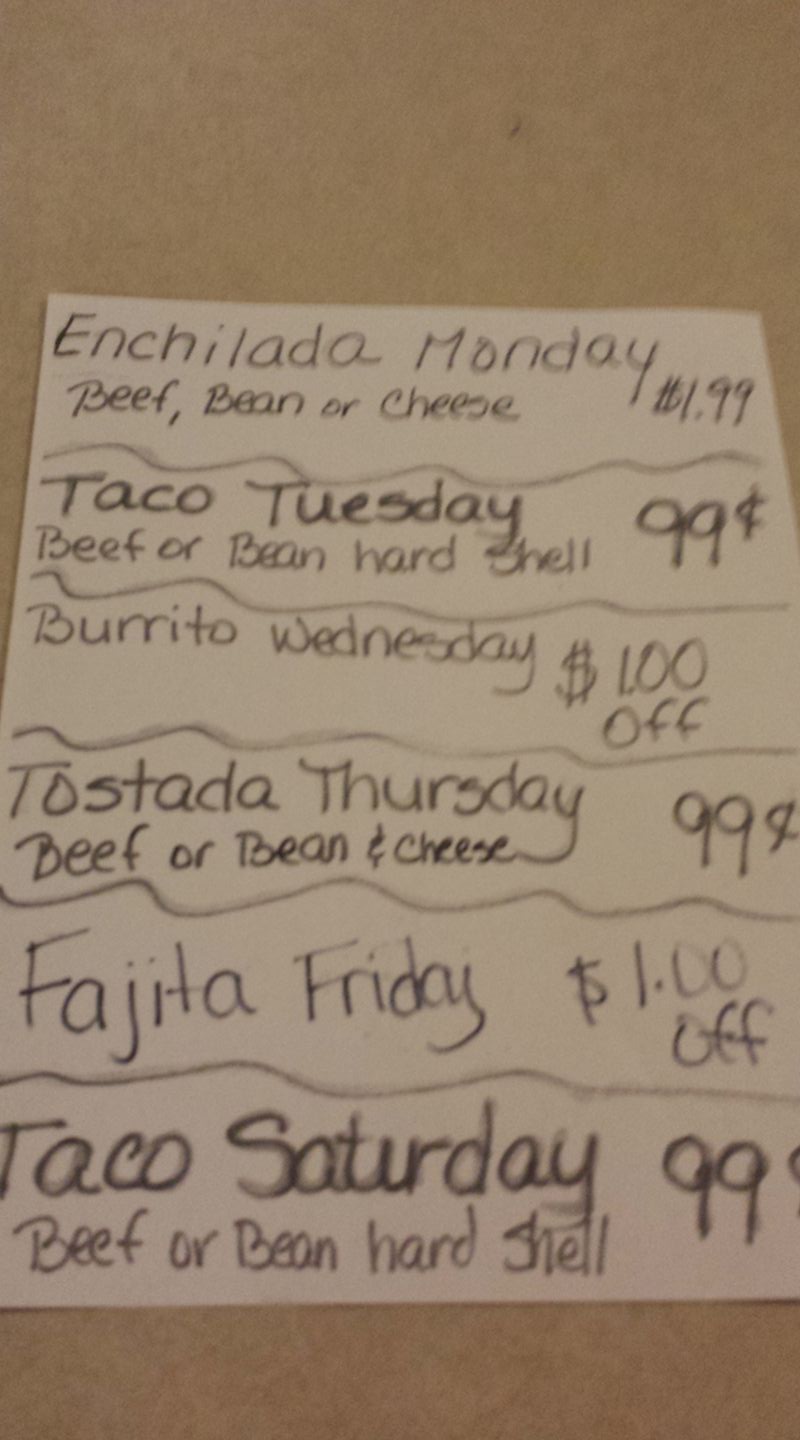 Enchilada Monday
Beef, Bean or Cheese $1.99
Taco Tuesday 99¢
Beef or Bean hard Shell
Burrito Wednesday $1.00
Off
Tostada Thursday 99¢
Beef or Bean & Cheese
Fajita Friday $1.00
Off
Taco Saturday 99¢
Beef or Bean hard Shell